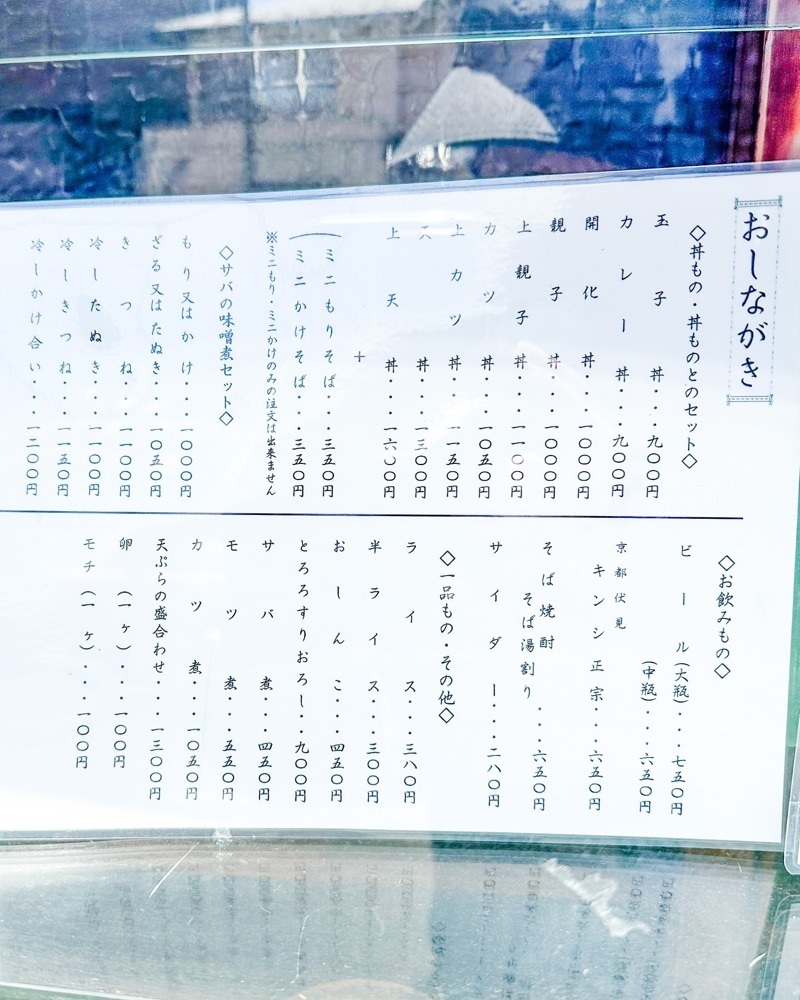 おしながき
◇丼もの・丼ものとのセット◇
玉子丼・・・九〇〇円
カレー丼・・・九〇〇円
開化丼・・・一〇〇〇円
親子丼・・・一〇〇〇円
上親子丼・・・一一〇〇円
カツ丼・・・一〇五〇円
上カツ丼・・・一一五〇円
天丼・・・一三〇〇円
上天丼・・・一六〇〇円
+
ミニもりそば・・・三五〇円
ミニかけそば・・・三五〇円
※ミニもり・ミニかけのみの注文は出来ません
◇サバの味噌煮セット◇
もり又はかけ・・・一〇〇〇円
ざる又はたぬき・・・一〇五〇円
きつね・・・一一〇〇円
冷したぬき・・・一一〇〇円
冷しきつね・・・一一五〇円
冷しかけ合い・・・一二〇〇円
◇お飲みもの◇
ビール(大瓶)・・・七五〇円
(中瓶)・・・六五〇円
京都伏見
キンシ正宗・・・六五〇円
そば焼酎
そば湯割り・・・六五〇円
サイダー・・・二八〇円
◇一品もの・その他◇
ライス・・・三八〇円
半ライス・・・三〇〇円
おしんこ・・・四五〇円
とろろすりおろし・・・九〇〇円
サバ煮・・・四五〇円
モツ煮・・・五五〇円
カツ煮・・・一〇五〇円
天ぷらの盛合わせ・・・一三〇〇円
卵(一ヶ)・・・一〇〇円
モチ(一ヶ)・・・一〇〇円